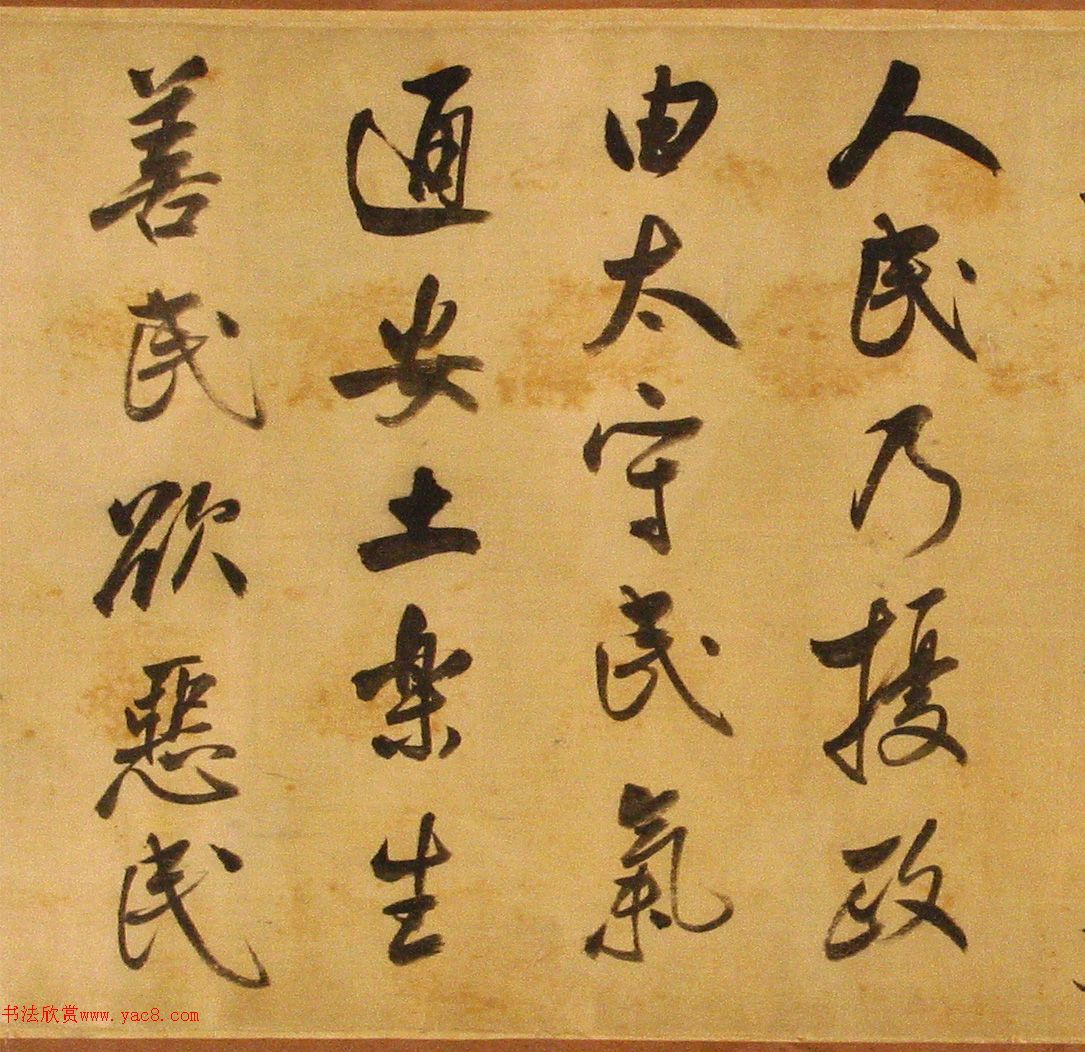 人民乃擾政
由太守民氣
通安土樂生
善民欲惡民
书法欣赏www.yac8.com